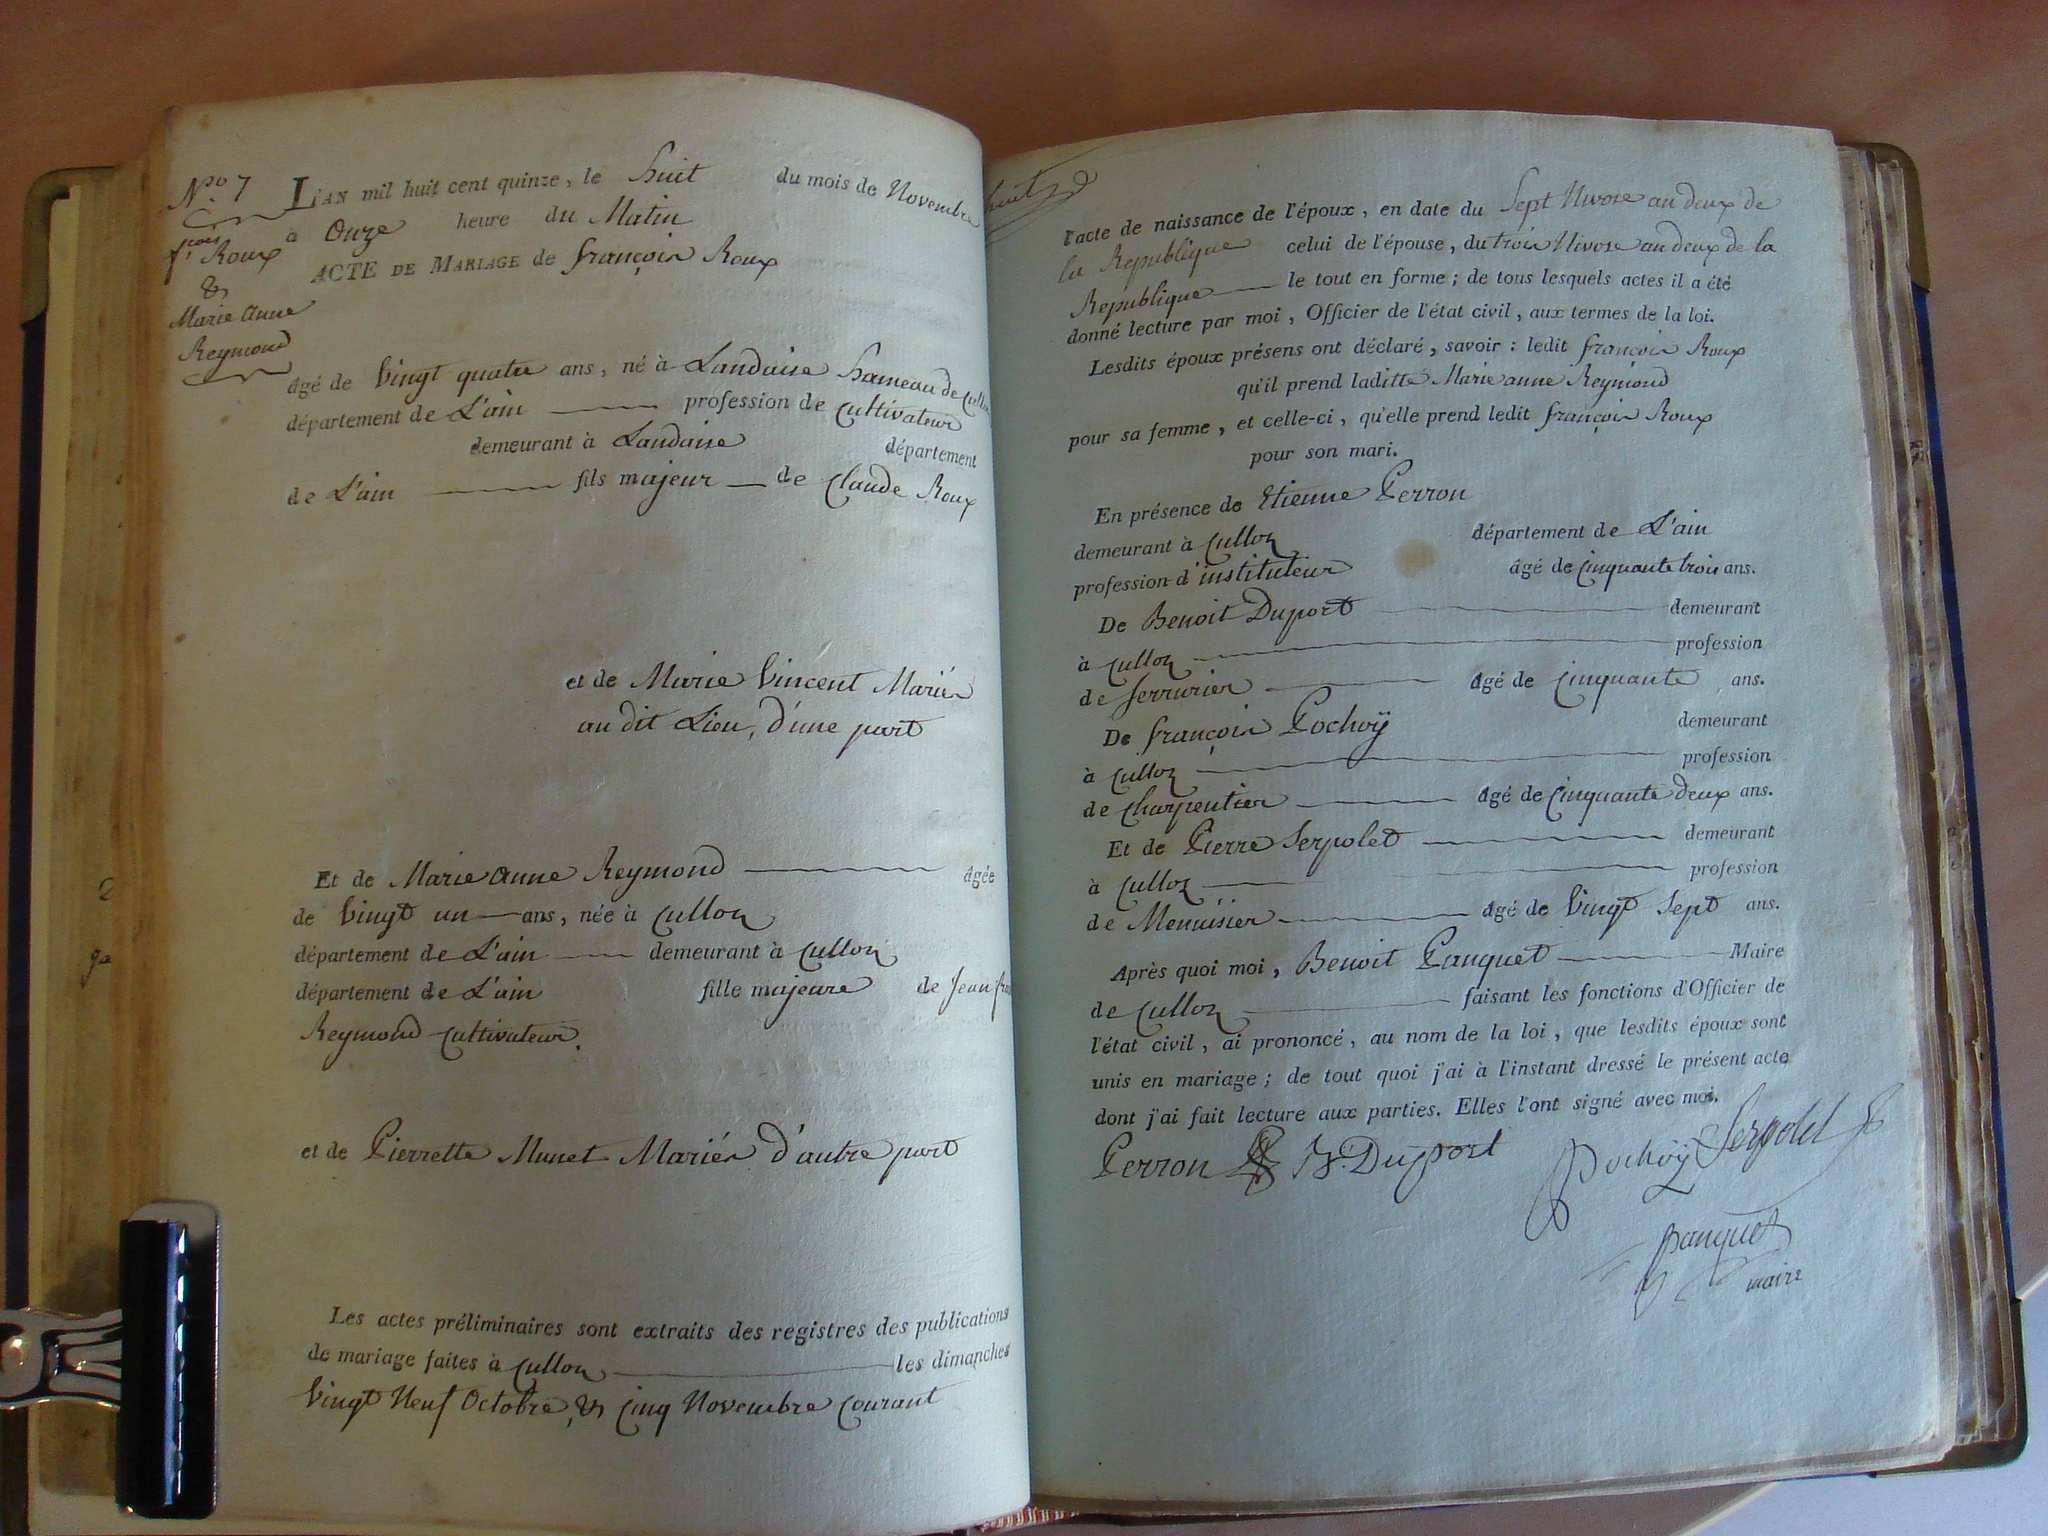 N.o 7
f.cois Roux
&
Marie anne
Reymond
L'AN mil huit cent quinze, le huit du mois de Novembre
à Onze heure du Matin
ACTE DE MARIAGE de françois Roux
âgé de Vingt quatre ans, né à Landaise hameau de
département de L'ain profession de Cultivateur
demeurant à Landaise département
de L'ain fils majeur de Claude Roux
et de Marie Vincent Mariés
au dit Lieu, d'une part
Et de Marie anne Reymond âgée
de Vingt un ans, née à Culloz
département de L'ain demeurant à Culloz
département de L'ain fille majeure de Jean
Reymond Cultivateur.
et de Pierrette Munet Mariés d'autre part
Les actes préliminaires sont extraits des registres des publications
de mariage faites à Culloz les dimanches
Vingt Neuf Octobre, & Cinq Novembre Courant
2
l'acte de naissance de l'époux, en date du Sept Nivose an deux de
la Republique celui de l'épouse, du trois Nivose an deux de la
Republique le tout en forme ; de tous lesquels actes il a été
donné lecture par moi, Officier de l'état civil, aux termes de la loi.
Lesdits époux présens ont déclaré, savoir : ledit françois Roux
qu'il prend laditte Marie anne Reymond
pour sa femme, et celle-ci, qu'elle prend ledit françois Roux
pour son mari.
En présence de Etienne Perron
demeurant à Culloz département de L'ain
profession d'instituteur âgé de Cinquante trois ans.
De Benoit Duport demeurant
à Culloz profession
de Serrurier âgé de Cinquante ans.
De françois Pochoÿ demeurant
à Culloz profession
de Charpentier âgé de Cinquante deux ans.
Et de Pierre Serpolet demeurant
à Culloz profession
de Menuisier âgé de Vingt Sept ans.
Après quoi moi, Benoit Panquet Maire
de Culloz faisant les fonctions d'Officier de
l'état civil, ai prononcé, au nom de la loi, que lesdits époux sont
unis en mariage ; de tout quoi j'ai à l'instant dressé le présent acte
dont j'ai fait lecture aux parties. Elles l'ont signé avec moi.
Perron B. Duport Pochoÿ Serpolet
Panquet
maire